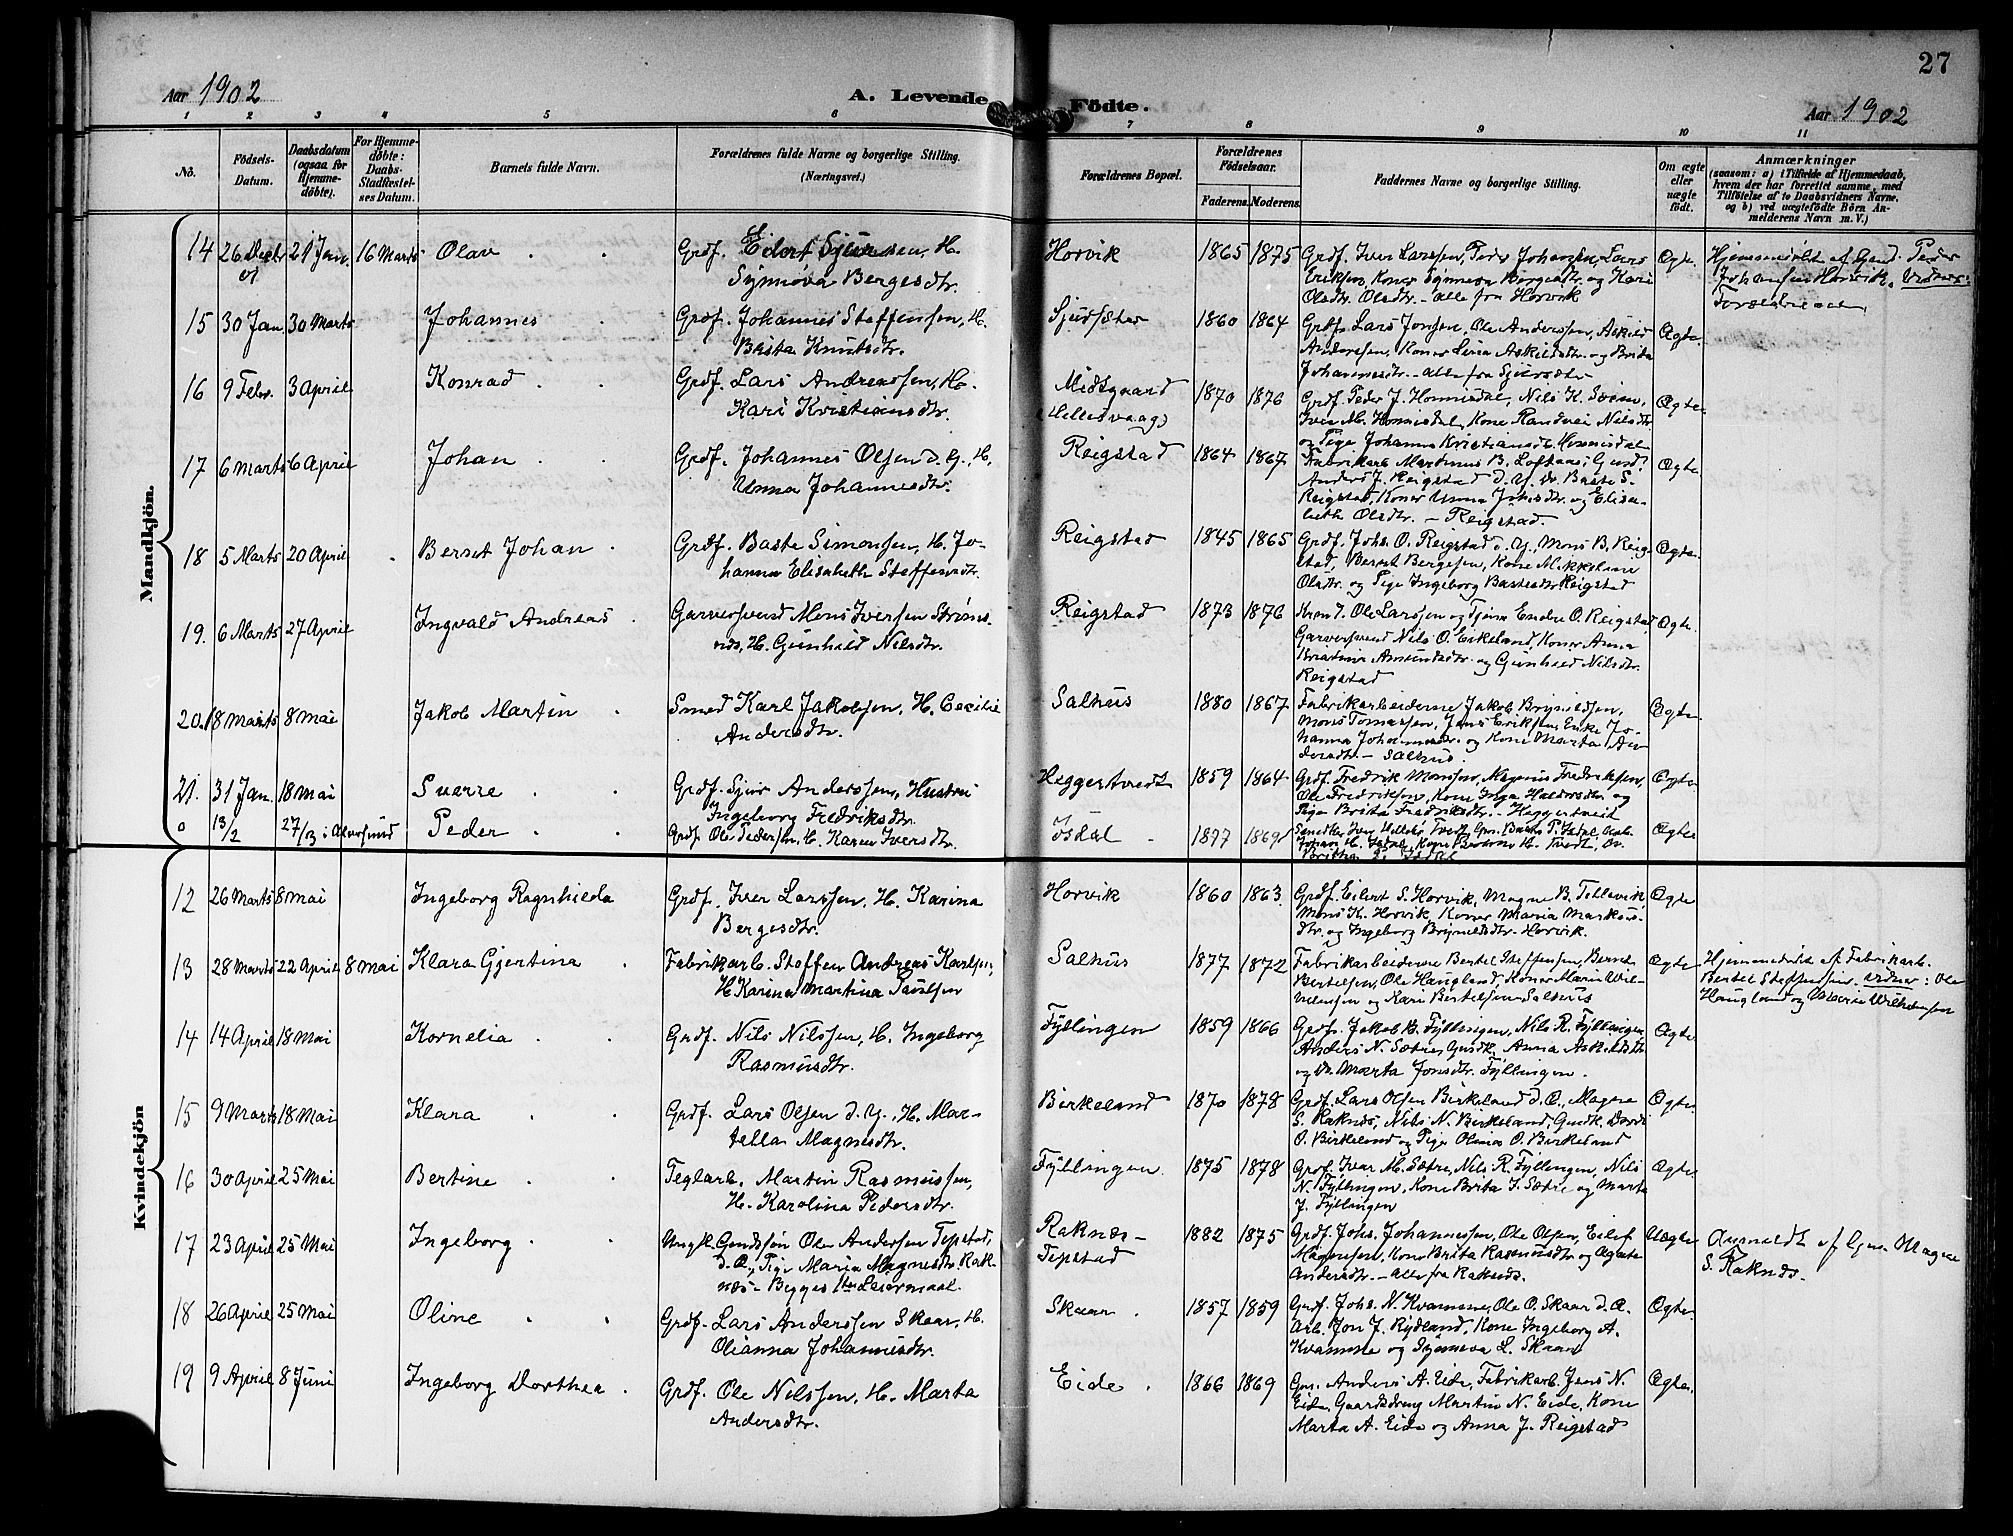 27
Aar 1902
A. Levende Födte.
Aar 1902
1 2 3 4 5 6 7 8 9 10 11
No.
Födsels-Datum.
Daabsdatum (ogsaa for Hjemme-döbte).
For Hjemme-döbte: Daabs-Stadfæstel-ses Datum.
Barnets fulde Navn.
Forældrenes fulde Navne og borgerlige Stilling. (Næringsvei.)
Forældrenes Bopæl.
Forældrenes Födselsaar.
Faderens. Moderens.
Faddernes Navne og borgerlige Stilling.
Om ægte eller uægte født.
Anmærkninger
(saasom: a) i Tilfælde af Hjemmedaab,
hvem der har forrettet samme, med
Tilföielse af to Daabsvidners Navne.
og b) ved uægtefödte Börn An-
melderens Navn m. V.)
Mandkjön.
14 26 Decbr 01 21 Jan. 16 Marts Olav Grdf. Eilert Sjursen, H.
Synnøva Bergesdtr.
Horvik 1865 1875 Grdf. Iver Larssen, Peder Johansen, Lars
Eriksen, Koner Synneva Børgesdtr. og Kari
Olsdtr. Olsdtr. - alle fra Horvik
Ægte. Hjemmedøbt af Gmd. Peder
Johansen Horvik. Vidner:
Forældrene
15 30 Jan. 30 Marts Johannes Grdf. Johannes Steffensen, H.
Brita Knutsdtr.
1860 1864 Grdf. Lars Jonsen, Ole Anderssen, Askild
Anderssen, Koner Lina Askildsdtr. og Brita
Johannesdtr. - alle fra
Ægte.
16 9 Febr. 3 April Konrad Grdf. Lars Andreassen, H.
Kari Kristiansdtr.
Midtgaard
(Hellesvaag)
1870 1876 Grdf. Peder J. Hommisdal, Nils K.
Iver M. Hommisdal, Kone Randvei Nilsdtr.
og Pige Johanna Kristiansdt. Hommisdal
Ægte.
17 6 Marts 6 April Johan Grdf. Johannes Olsen d. y., H.
Unna Johannesdtr.
Reigstad 1864 1867 Fabrikarb. Martinus B. Loftaas, Gmd.
Anders J. Reigstad d. Y. Baste S.
Reigstad, Koner Unna og Elisa-
beth Olsdtr. - Reigstad.
Ægte.
18 5 Marts 20 April Bernt Johan Grdf. Baste Simonsen, H. Jo-
hanna Elisabeth Steffensdtr.
Reigstad 1845 1865 Grdf. Johs. O. Reigstad d. Y., Mons B. Reig-
stad, Bernt Bergesen, Kone Mikkeline
Olsdtr. og Pige Ingeborg Bastesdtr. Reigstad
Ægte.
19. 6 Marts 27 April Ingvald Andreas Garversvend Mons Iversen Strøms-
nes, H. Gunhild Nilsdtr.
Reigstad 1873 1876 Ole Larssen og Endre O. Reigstad
Garversvend Nils O. Eikeland, Koner Anna
Kristina Amundsdtr. og Gunhild Nilsdtr.
Reigstad
Ægte.
20. 18 Marts 8 Mai Jakob Martin Smed Karl Jakobsen, H. Cecilie
Andersdtr.
Salhus 1880 1867 Fabrikarbeiderne Jakob Brynildsen,
Mons Tomassen, Jens Eriksen, Enke Jo-
hanna Johannesdtr. og Kone Marta An-
dersdtr. - Salhus.
Ægte.
21. 31 Jan. 18 Mai Sverre Grdf. Sjur Anderssen, Hustru
Ingeborg Fredriksdtr.
Heggertvedt 1859 1864 Grdf. Fredrik Monssen, Magnus Fredriksen,
Ole Fredriksen, Kone Inga Haldorsdtr. og
Pige Brita Fredriksdtr. - Heggertveit
Ægte
0 13/2 27/3 i Alversund Peder Grdf. Ole Pedersen, H. Karen Iversdtr.
Isdal 1877 1869 Iver Tvedt, Gm. Baste P. Isdal, Arb.
Johan H. Isdal, Kone H. Tvedt,
Ægte
Kvindekjön
12 26 Marts 8 Mai Ingeborg Ragnhilda Grdf. Iver Larssen, H. Karina
Bergesdtr.
Horvik 1860 1863. Grdf. Eilert S. Horvik, Magne B. Tellevik
Mons K. Horvik, Koner Maria Markus-
dtr. og Ingeborg Brynildsdtr. Horvik.
Ægte
13 28 Marts 22 April 8 Mai Klara Gjertina Fabrikarb. Steffen Andreas Karlsen,
H. Karina Martina Paulsen
Salhus 1877 1872 Fabrikarbeiderne Bertel Steffensen, Bernt
Bertelsen, Ole Haugland, Koner Marie Wil-
helmsen og Kari Bertelsen Salhus
Ægte Hjemmedøbt af Fabrikarb.
Bertel Steffensen. Vidner: Ole
Haugland og Marie Wilhelmsen
14 14 April 18 Mai Kornelia Grdf. Nils Nilssen, H. Ingeborg
Rasmusdtr.
Fyllingen 1859 1866 Grdf. Jakob H. Fyllingen, Nils R. Fyllingen
Anders N. Sætre, Gmdk. Anna Askildsdtr.
og Marta Jonsdtr. Fyllingen.
Ægte
15 9 Marts 18 Mai Klara Grdf. Lars Olsen d. Y., H. Mar-
tella Magnesdtr.
Birkeland 1870 1878 Grdf. Lars Olsen Birkeland d. Æ., Magne
S. Raknes, Nils N. Birkeland, Gmdk. Dorde
O. Birkeland og Pige Olina O. Birkeland
Ægte.
16 30 April 25 Mai Bertine Teglarb. Martin Rasmussen,
H. Karolina Pedersdtr.
Fyllingen 1875 1878 Grdf. Ivar M. Sætre, Nils R. Fyllingen, Nils
N. Fyllingen, Kone Brita I. Sætre og Marta
J. Fyllingen
Ægte.
17 23 April 25 Mai Ingeborg Ungk. Gmdssøn Ole Andersen Tepstad,
d. Æ., Pige Maria Magnesdtr. Rak-
næs - Begges 1ste Leiermaal.
Raknæs -
Tepstad
1882 1875 Grdf. Johs. Johannessen, Ole Olsen, Eilef
Magnesen, Koner Brita Rasmusdtr. og Agate
Andersdtr. - alle fra Raknes.
Uægte Anmeldt af Gm. Magne
S. Raknes.
18 26 April 25 Mai Oline Grdf. Lars Anderssen Skaar, H.
Olianna Johannesdtr.
Skaar 1857 1859 Grdf. Johs. N. Kvamme, Ole O. Skaar d. Æ.
Arb. Jon J. Rydland, Kone Ingeborg A.
Kvamme og Synneva L. Skaar
Ægte.
19 9 April 8 Juni Ingeborg Dorthea Grdf. Ole Nilssen, H. Marta
Andersdtr.
Eide 1866 1869 Gm. Anders A. Eide, Fabrikarb. Jens N.
Eide, Gaardsdreng Martin N. Eide, Kone
Marta A. Eide og Anna J. Reigstad
Ægte.